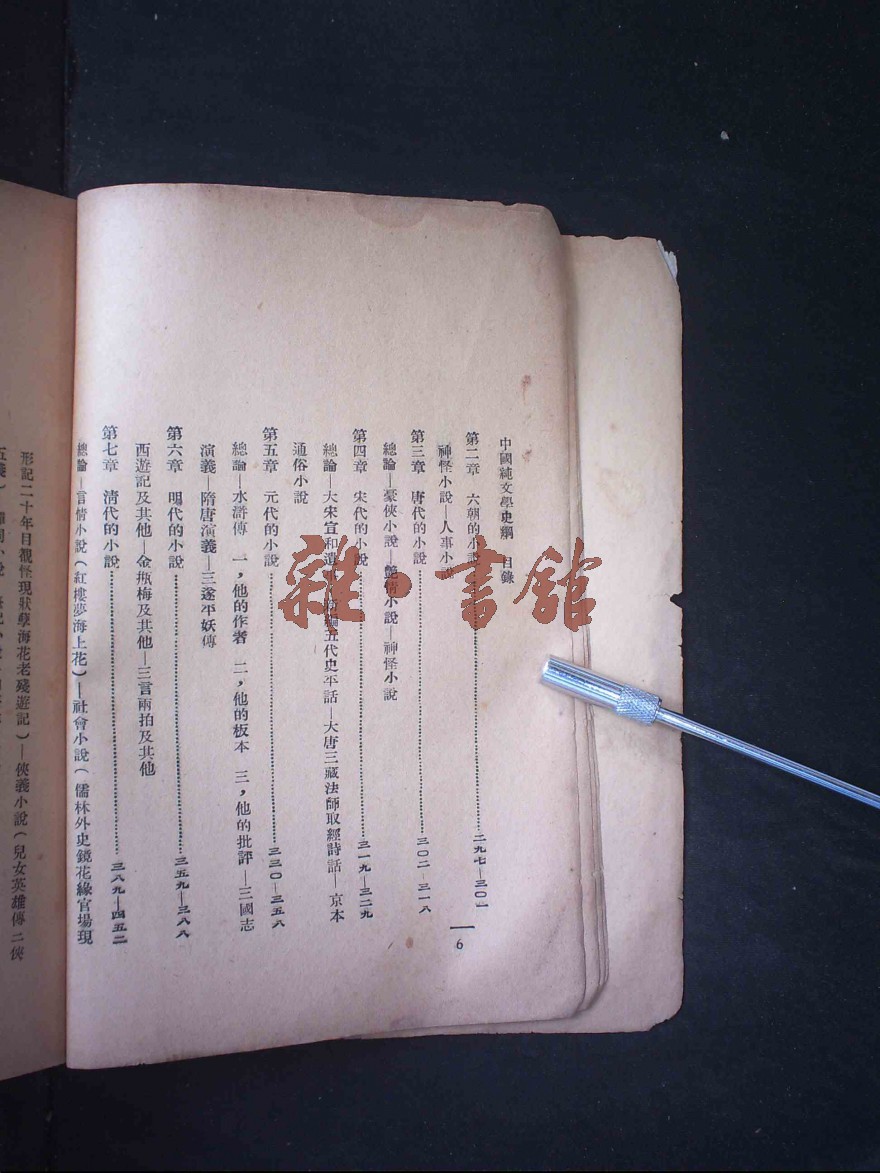 中國純文學史綱　目錄
第二章　六朝的小說……二九七—三〇一
神怪小說—人事小
第三章　唐代的小說……三〇二—三一八
總論—豪俠小說—艷情小說—神怪小說
第四章　宋代的小說……三一九—三二九
總論—大宋宣和遺事 五代史平話—大唐三藏法師取經詩話—京本
通俗小說
第五章　元代的小說……三三〇—三五六
總論—水滸傳　一，他的作者　二，他的板本　三，他的批評—三國志
演義—隋唐演義—三遂平妖傳
第六章　明代的小說……三五九—三八八
西遊記及其他—金瓶梅及其他—三言兩拍及其他
第七章　清代的小說……三八九—四五二
總論—言情小說（紅樓夢海上花）—社會小說（儒林外史鏡花緣官場現
形記二十年目覩怪現狀孽海花老殘遊記）—俠義小說（兒女英雄傳三俠
6
雜·書館